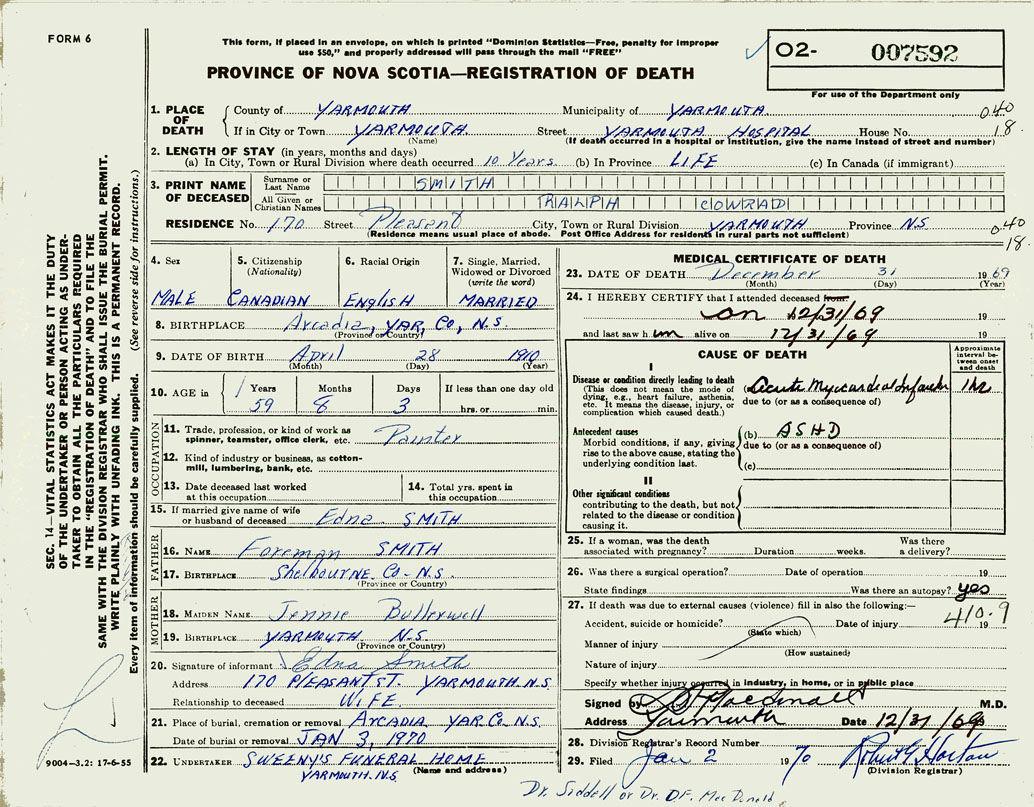 FORM 6
This form, if placed in an envelope, on which is printed "Dominion Statistics—Free, penalty for improper
use $50," and properly addressed will pass through the mail "FREE"
O2- 007592
For use of the Department only
PROVINCE OF NOVA SCOTIA—REGISTRATION OF DEATH
SEC. 14—VITAL STATISTICS ACT MAKES IT THE DUTY
OF THE UNDERTAKER OR PERSON ACTING AS UNDER-
TAKER TO OBTAIN ALL THE PARTICULARS REQUIRED
IN THE "REGISTRATION OF DEATH" AND TO FILE THE
SAME WITH THE DIVISION REGISTRAR WHO SHALL ISSUE THE BURIAL PERMIT.
WRITE PLAINLY WITH UNFADING INK. THIS IS A PERMANENT RECORD.
Every item of information should be carefully supplied. (See reverse side for instructions.)
1. PLACE OF DEATH
County of YARMOUTH Municipality of YARMOUTH 040
If in City or Town YARMOUTH. Street YARMOUTH HOSPITAL House No. 18.
(Name) (If death occurred in a hospital or institution, give the name instead of street and number)
2. LENGTH OF STAY (in years, months and days)
(a) In City, Town or Rural Division where death occurred 10 Years (b) In Province LIFE (c) In Canada (if immigrant)
3. PRINT NAME OF DECEASED
Surname or Last Name SMITH
All Given or Christian Names RALPH COWRAD
RESIDENCE No. 170 Street Pleasant City, Town or Rural Division YARMOUTH Province N.S 040
(Residence means usual place of abode. Post Office Address for residents in rural parts not sufficient) 18
4. Sex 5. Citizenship (Nationality) 6. Racial Origin 7. Single, Married, Widowed or Divorced (write the word)
MALE CANADIAN ENglisH MARRIED
8. BIRTHPLACE Arcadia, YAR. Co, N.S.
(Province or Country)
9. DATE OF BIRTH April 28 1910
(Month) (Day) (Year)
10. AGE in Years Months Days If less than one day old
59 8 3 hrs. or min.
OCCUPATION
11. Trade, profession, or kind of work as
spinner, teamster, office clerk, etc. Painter
12. Kind of industry or business, as cotton-
mill, lumbering, bank, etc.
13. Date deceased last worked
at this occupation
14. Total yrs. spent in
this occupation
15. If married give name of wife
or husband of deceased Edna SMITH
FATHER
16. NAME Foreman SMITH
17. BIRTHPLACE Shelbourne Co- N.S.
(Province or Country)
MOTHER
18. MAIDEN NAME Jennie Bullerwell
19. BIRTHPLACE YARMOUTH N.S
(Province or Country)
20. Signature of informant Edna Smith
Address 170 PLEASANT ST. YARMOUTH. N.S
Relationship to deceased WIFE.
21. Place of burial, cremation or removal ARCADIA, YAR Co. N.S.
Date of burial or removal JAN 3, 1970
22. UNDERTAKER SWEENY'S FUNERAL HOME
YARMOUTH. N.S (Name and address)
9004—3.2: 17-6-55
MEDICAL CERTIFICATE OF DEATH
23. DATE OF DEATH December 31 1969
(Month) (Day) (Year)
24. I HEREBY CERTIFY that I attended deceased from
on 12/31/69 19
and last saw h im alive on 12/31/69 19
CAUSE OF DEATH
Approximate interval between onset and death
I
Disease or condition directly leading to death (a) Acute Myocardial Infarction 1 hr
(This does not mean the mode of
dying, e.g., heart failure, asthenia,
etc. It means the disease, injury, or
complication which caused death.)
due to (or as a consequence of)
Antecedent causes (b) ASHD
Morbid conditions, if any, giving
rise to the above cause, stating the
underlying condition last.
due to (or as a consequence of)
(c)
II
Other significant conditions
contributing to the death, but not
related to the disease or condition
causing it.
25. If a woman, was the death
associated with pregnancy? Duration weeks. Was there a delivery?
26. Was there a surgical operation? Date of operation 19
State findings Was there an autopsy? yes
27. If death was due to external causes (violence) fill in also the following:— 410.9
Accident, suicide or homicide? Date of injury 19
(State which)
Manner of injury
(How sustained)
Nature of injury
Specify whether injury occurred in industry, in home, or in public place
Signed by D F MacDonald M.D.
Address Yarmouth Date 12/31/69
28. Division Registrar's Record Number
29. Filed Jan 2 1970 Robert G Horton
(Division Registrar)
Dr. Siddell or Dr. D.F. MacDonald